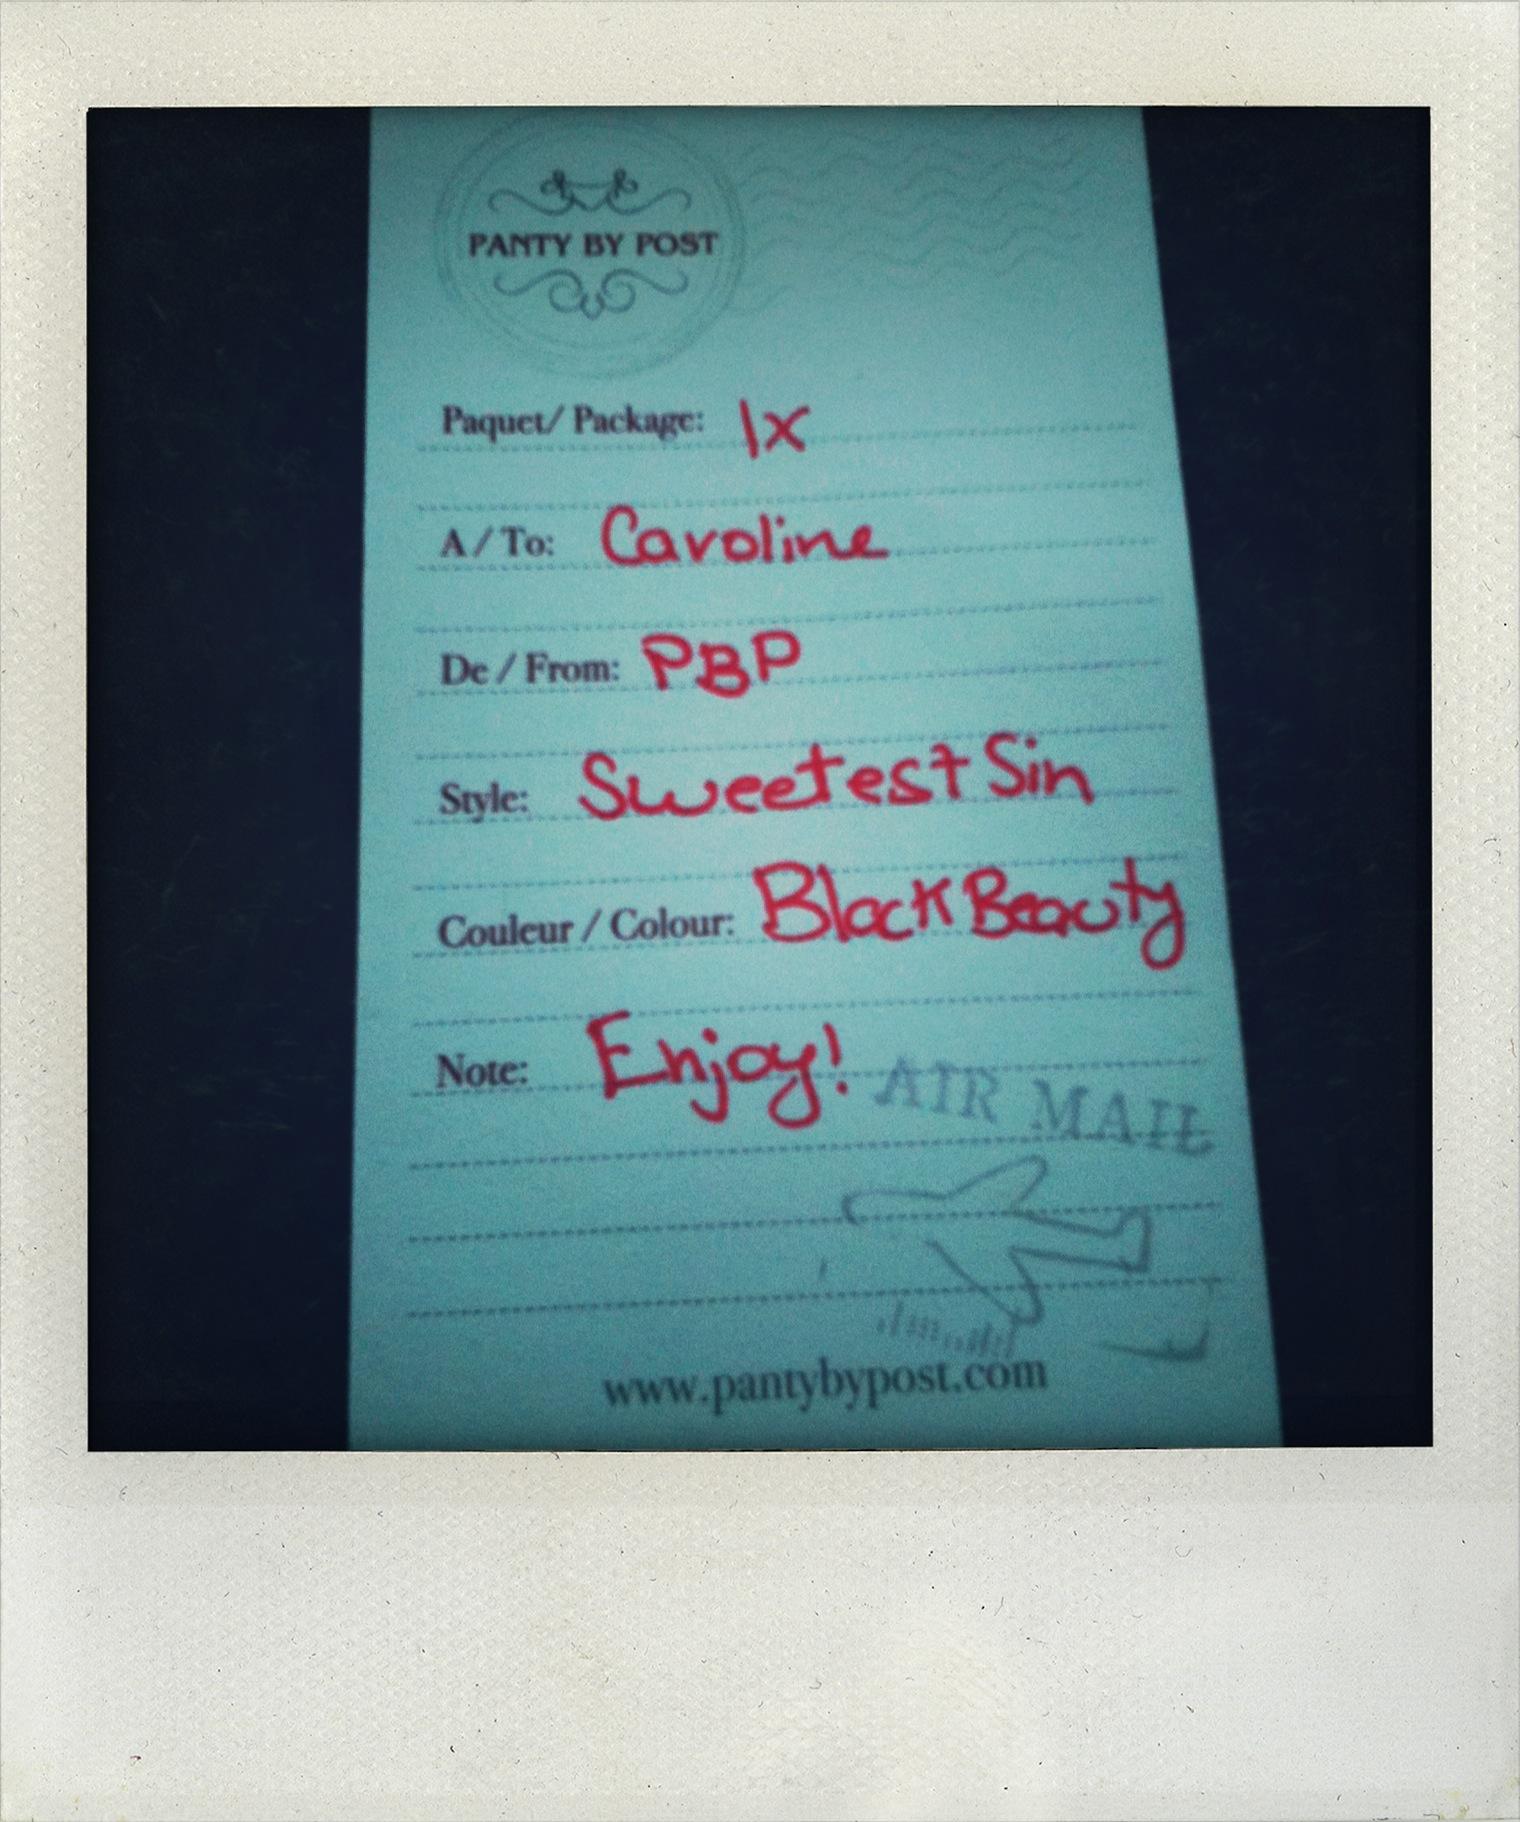 PANTY BY POST
Paquet/ Package: 1x
A / To: Caroline
De / From: PBP
Style: Sweetest Sin
Couleur / Colour: Black Beauty
Note: Enjoy!
AIR MAIL
www.pantybypost.com